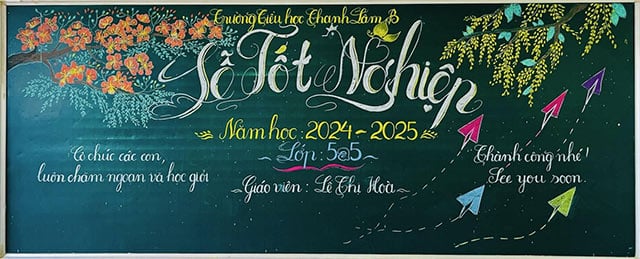 Trường Tiểu học Thanh Lâm B
Lễ Tốt Nghiệp
Năm học : 2024 - 2025
Lớp : 5@5
Giáo viên : Lê Thị Hoà
Cô chúc các con,
luôn chăm ngoan và học giỏi
Thành công nhé !
See you soon.